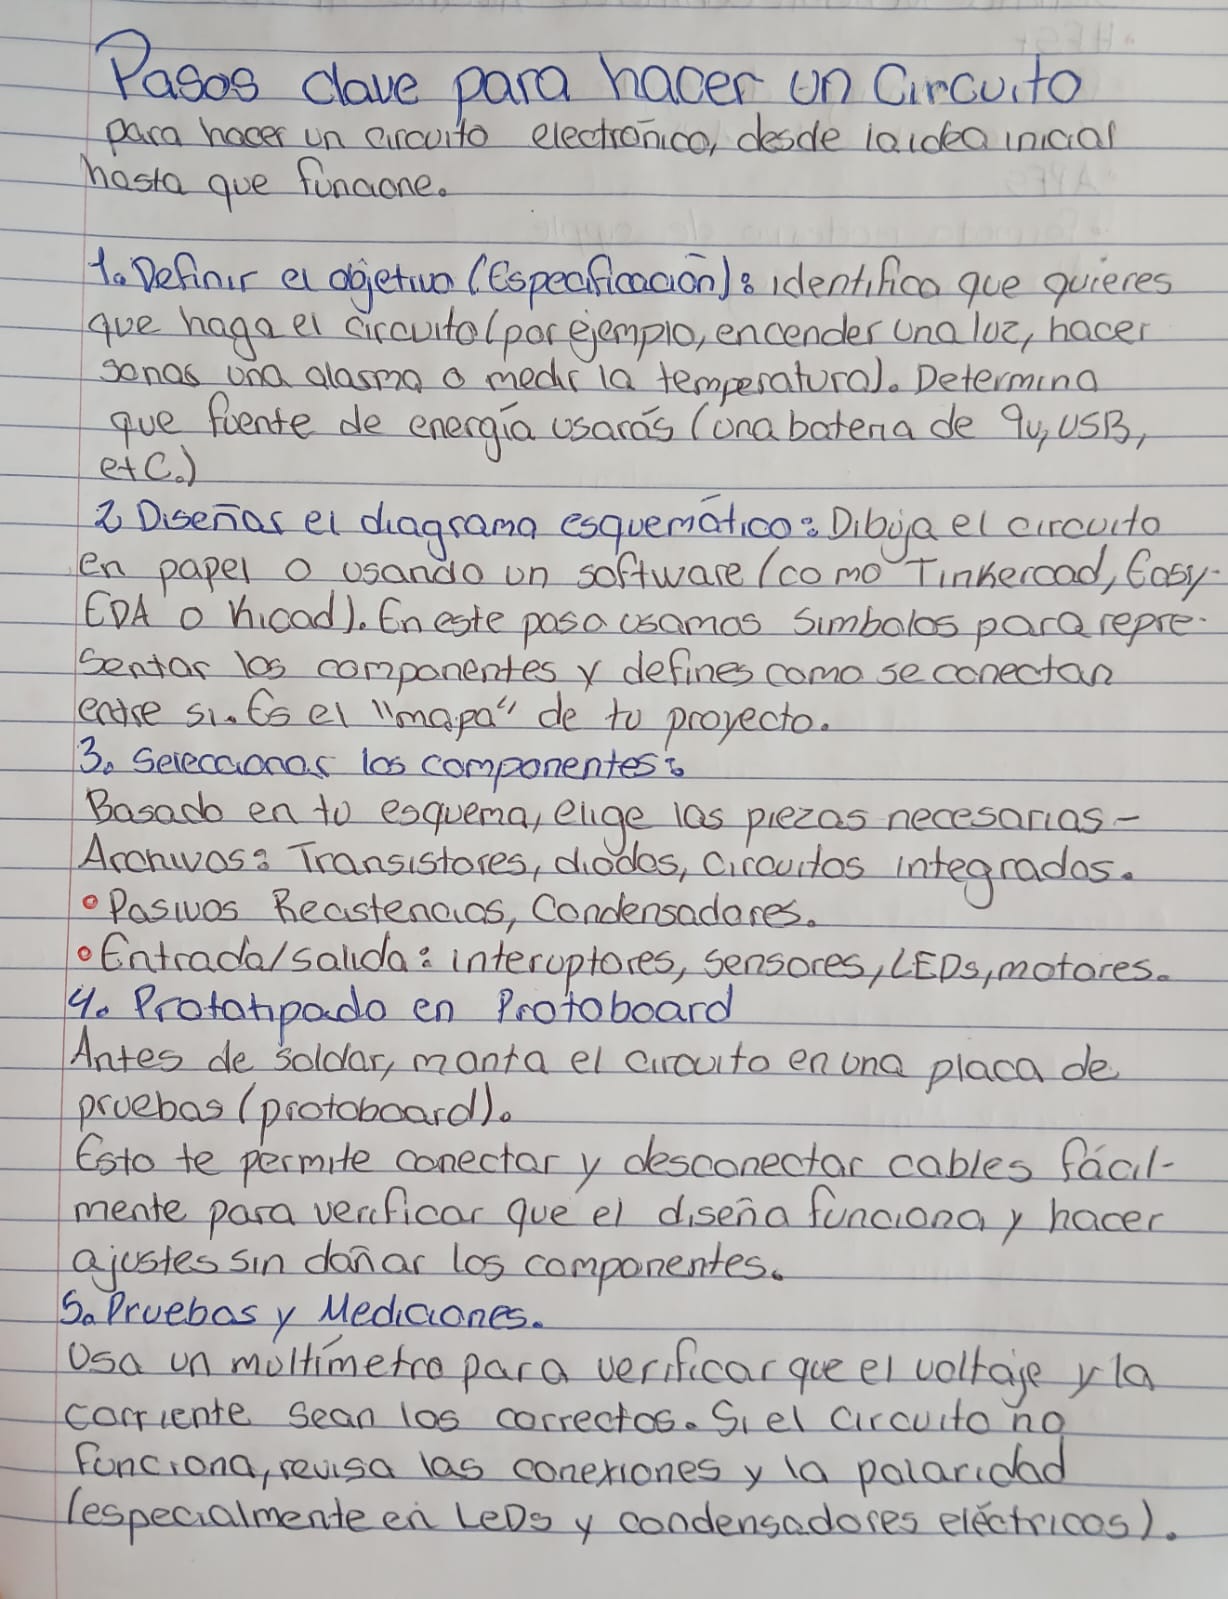 Pasos clave para hacer un Circuito
para hacer un circuito electroñico, desde la idea inicial
hasta que funcione.
1. Definir el objetivo (Especificación): identifica que quieres
que haga el circuito (por ejemplo, encender una luz, hacer
sonas una alasma o medir la temperatura). Determina
que fuente de energía usarás (una bateria de 9v, USB,
etc.)
2 Diseñas el diagrama esquemático: Dibuja el circuito
en papel o usando un software (como Tinkercad, Easy-
EDA o Kicad). En este paso usamos simbolos para repre-
sentar los componentes y defines como se conectan
entre si. Es el "mapa" de tu proyecto.
3. Seleccionas los componentes:
Basado en tu esquema, elige las piezas necesarias -
Archivos: Transistores, diodos, circuitos integrados.
• Pasivos Recistencias, Condensadores.
• Entrada/salida: interuptores, sensores, LEDs, motores.
4. Prototipado en Protoboard
Antes de soldar, monta el circuito en una placa de
pruebas (protoboard).
Esto te permite conectar y desconectar cables fácil-
mente para verificar que el diseña funciona y hacer
ajustes sin dañar los componentes.
5. Pruebas y Mediciones.
Usa un multímetro para verificar que el voltaje y la
corriente sean los correctos. Si el circuito no
funciona, revisa las conexiones y la polaridad
(especialmente en LeDs y condensadores eléctricos).